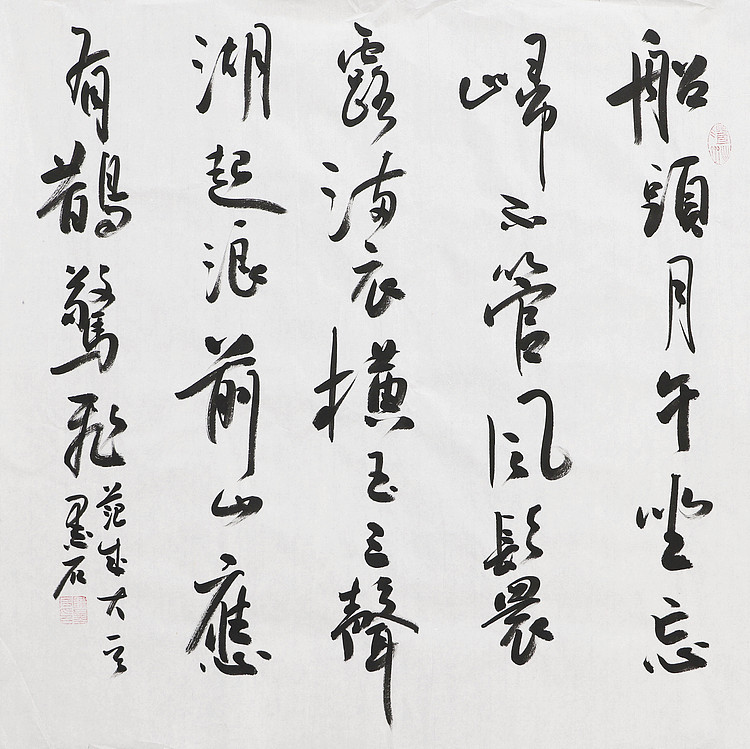 船頭月午坐忘
歸不管風鬟
露滿衣橫玉三聲
湖起浪前山應
有鵲驚飛
范成大
墨石